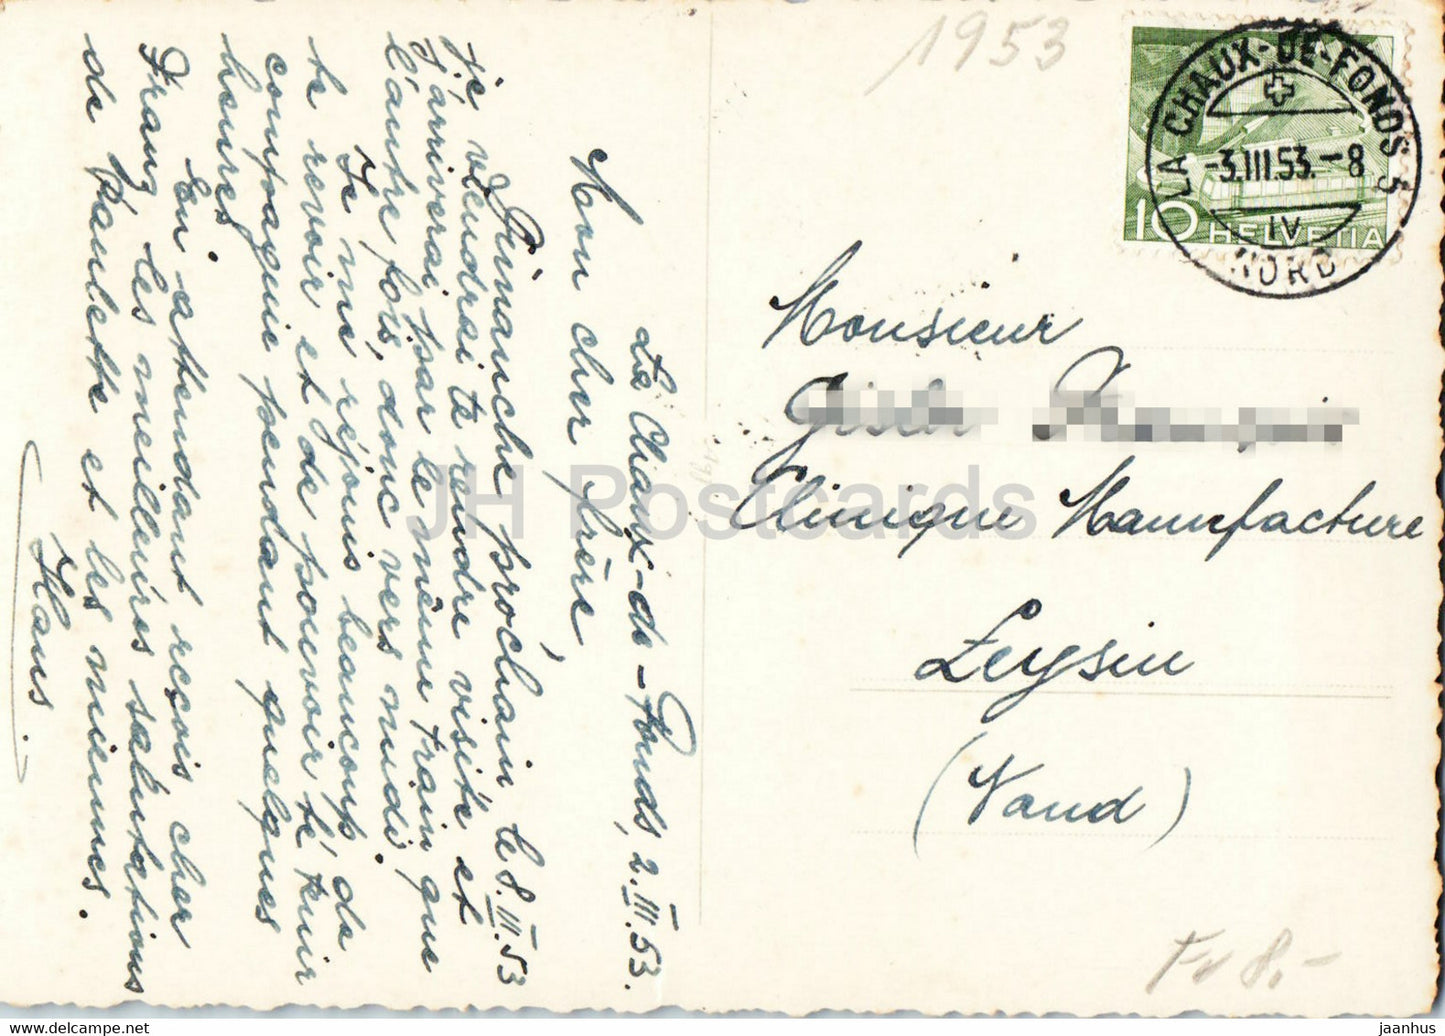 1953
LA CHAUX-DE-FONDS 5
-3.III.53.-8
IV
NORD
10 HELVETIA
La Chaux-de-Fonds, 2.III.53.
Mon cher frère,
Dimanche prochain le 8.III.53
je viendrai te rendre visite et
j'arriverai par le même train que
l'autre fois, donc vers midi.
Je me réjouis beaucoup de
te revoir et de pouvoir te tenir
compagnie pendant quelques
heures.
En attendant reçois cher
Franz les meilleures salutations
de Paulette et les miennes.
Hans.
Monsieur
Clinique Manufacture
Leysin
(Vaud)
Fr 8.-
JH Postcards
http://www.delcampe.net
jaanhus